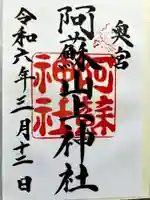 奥宮
阿蘇山上神社
阿蘇
神社
令和六年三月十三日